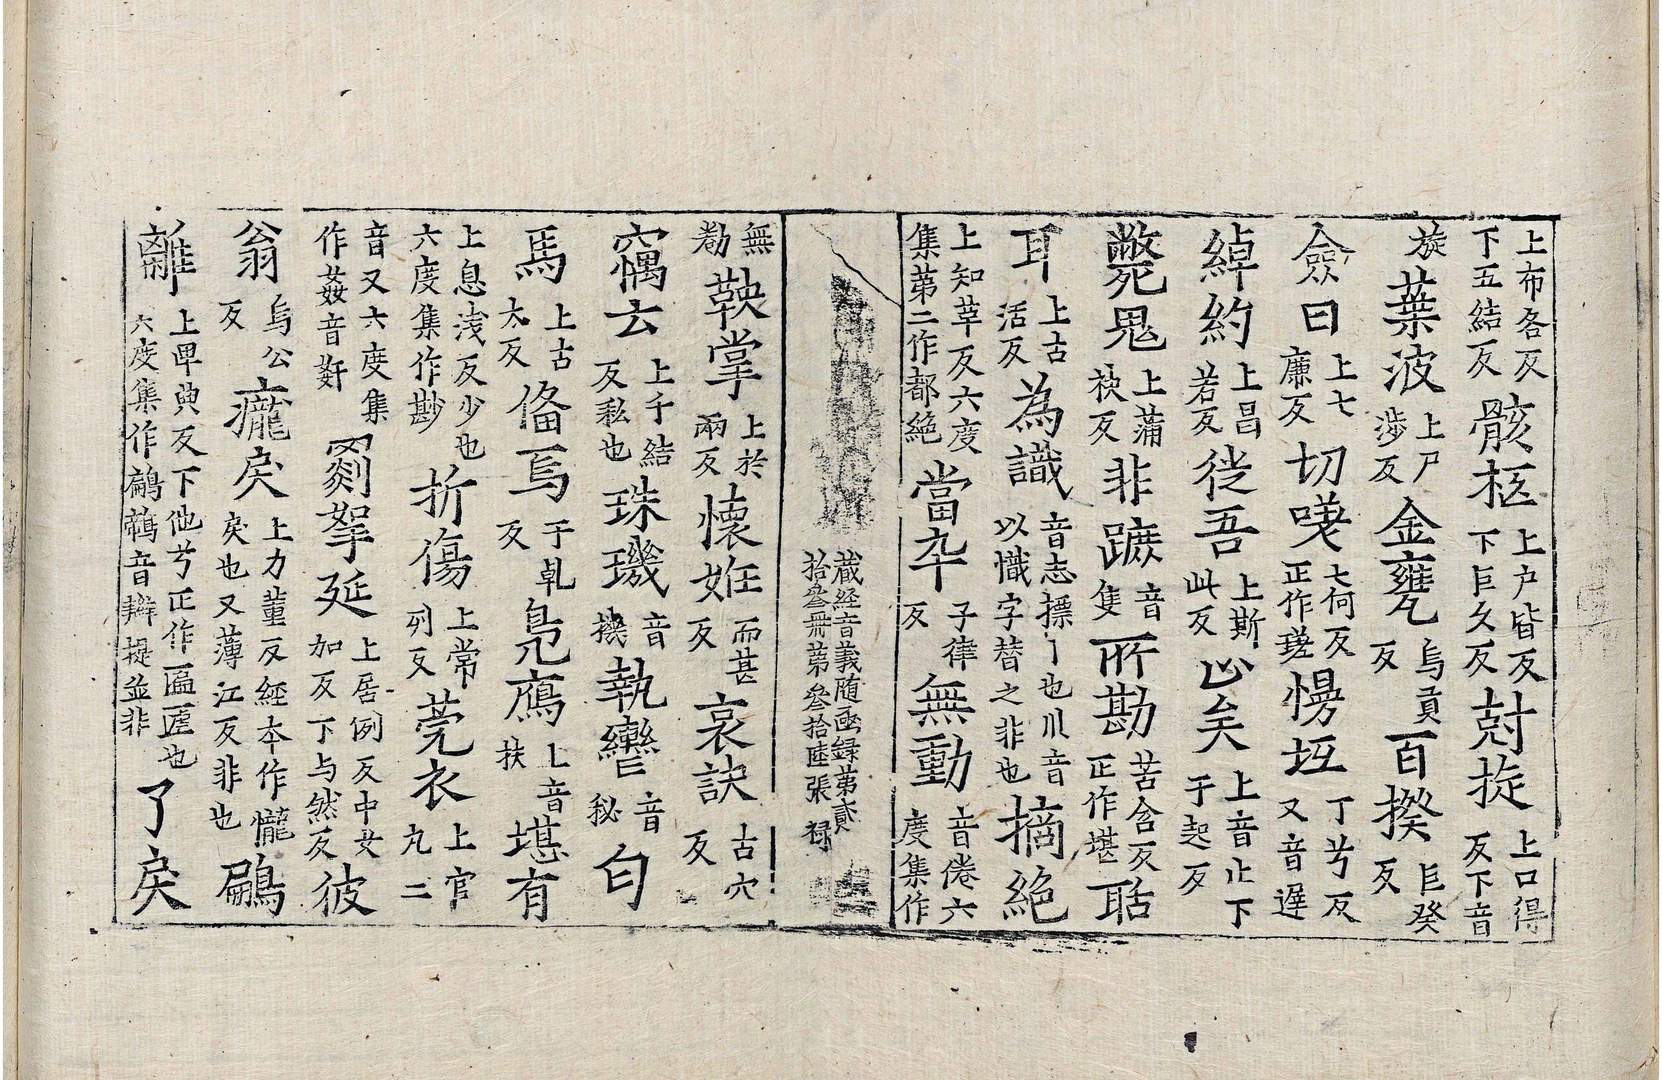 上布各反下五結反骸柩上户皆反下巨久反尅㨗上口得反下音
㨗葉波上尸涉反金甕烏貢反百揆巨癸反
僉曰上七廉反切嗟七何反正作瑳㥬坻丁兮反又音遲
綽約上昌若反徙吾上斯此反止矣上音止下于起反
斃鬼上蒲袂反非蹠音隻所勘苦含反正作堪聒
耳上古活反為識音志摽丨也川音以幟字替之非也摘絕
上知革反六度集第二作都絕當卒子律反無動音倦六度集作
藏經音義随函録第貳拾叄冊第叄拾陸張 禄
無勌鞅掌上於兩反懷姙而甚反哀訣古穴反
竊去上千結反私也珠璣音機執轡音祕匃
焉上古太反俻焉于乹反鳧鴈上音扶堪有
上息淺反少也六度集作尠折傷上常列反莞衣上官丸二
音又六度集作葌音姧罽拏延上居例反中女加反下与然反彼
翁烏公反瘲戾上力董反經本作儱戾也又薄江反非也鷊
䶕上卑典反下他兮反正作匾㔸也六度集作鷊鵜音辮提並非了戾